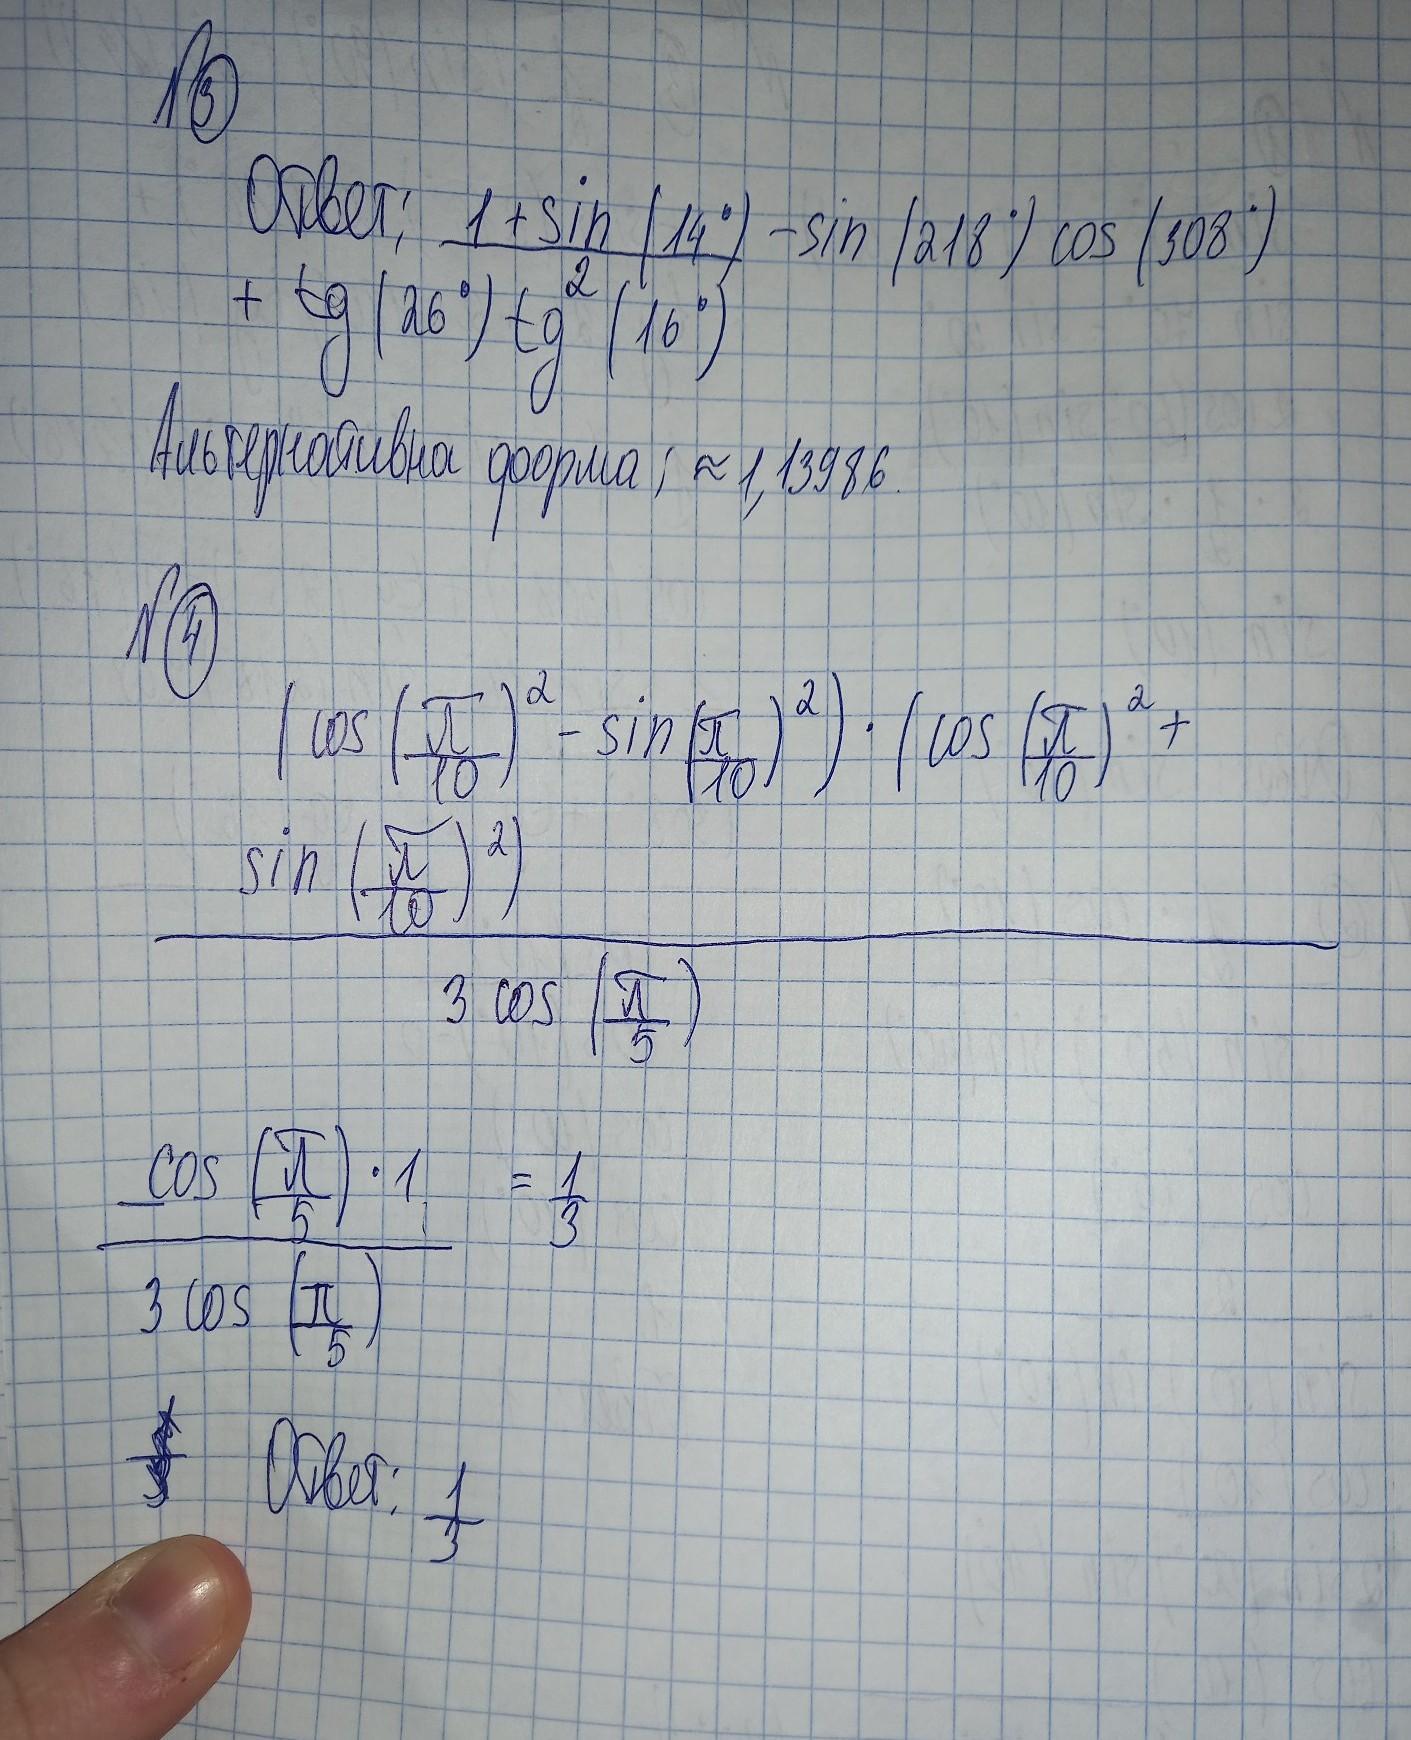 N3
Ответ; 1+sin(14°)/2 -sin(218°)cos(308°)
+ tg(26°)tg(16°)
Альтернативна форма; ≈1,13986.
N4
(cos(π/10)² - sin(π/10)²)·(cos(π/10)² +
sin(π/10)²)
3 cos(π/5)
cos(π/5)·1 = 1/3
3 cos(π/5)
Ответ: 1/3